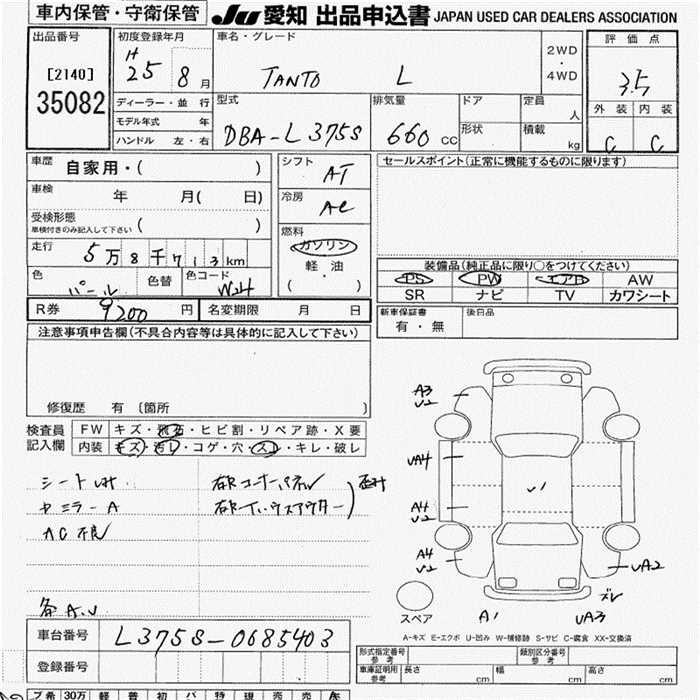 車内保管・守衛保管 JU愛知 出品申込書 JAPAN USED CAR DEALERS ASSOCIATION
出品番号
[2140]
35082
初度登録年月
H 25 8月
車名・グレード
TANTO L
2WD
・
4WD
評価点
3.5
ディーラー・並行
モデル年式 年
ハンドル 左・右
型式
DBA-L375S
排気量
660 CC
ドア
形状
定員
人
積載
kg
外装 内装
C C
車歴
自家用・( )
車検
年 月( 日)
受検形態
車検付きのみ記入して下さい ( )
走行
5万8千713km
色
パール
色替
色コード
W24
シフト
AT
冷房
AC
燃料
ガソリン
軽・油
( )
セールスポイント(正常に機能するものに限ります)
装備品(純正品に限り○をつけてください)
PS PW エアB AW
SR ナビ TV カワシート
新車保証書
有・無
後日品
R券
9200 円
名変期限 月 日
注意事項申告欄(不具合内容等は具体的に記入して下さい)
修復歴 有 〔箇所 〕
検査員
記入欄
FW キズ・飛石・ヒビ割・リペア跡・X要
内装 キズ・汚レ・コゲ・穴・スレ・キレ・破レ
A3
V2
UA4
A4
V2
A4
V2
A1
UA3
UA2
ズレ
スペア
A-キズ E-エクボ U-凹み W-補修跡 S-サビ C-腐食 XX-交換済
車台番号
L375S-0685403
登録番号
形式指定番号
参考
類別区分番号
参考
車庫証明用
参考
長さ cm
幅 cm
高さ cm